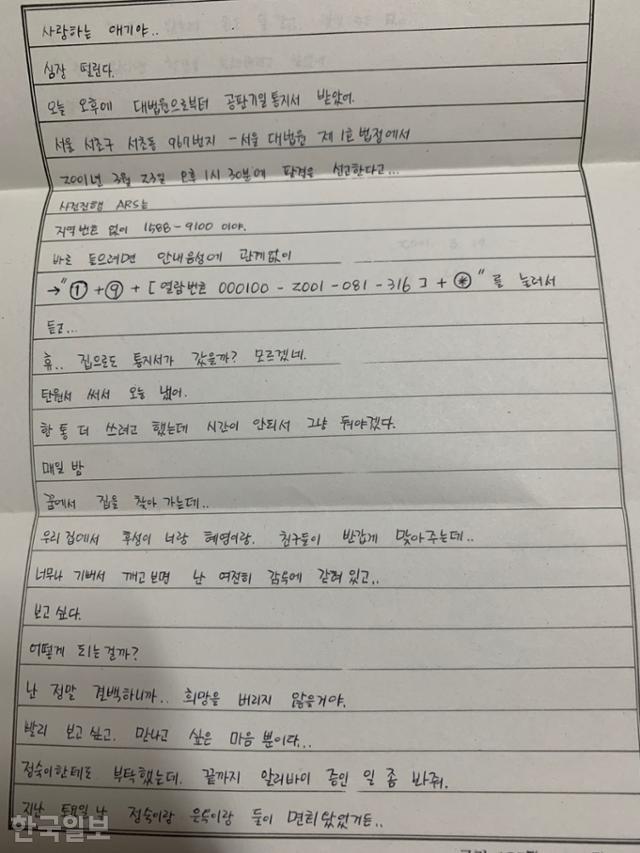 사랑하는 애기야..
심장 떨린다.
오늘 오후에 대법원으로부터 공판기일 통지서 받았어.
서울 서초구 서초동 967번지 - 서울 대법원 제 1호 법정에서
2001년 3월 23일 오후 1시 30분에 판결을 선고한다고...
사건진행 ARS는
지역번호 없이 1588-9100 이야.
바로 들으려면 안내음성에 관계없이
→"① + ⑨ + [열람번호 000100 - 2001 - 081 - 316] + ⊛"를 눌러서
듣고...
휴.. 집으로도 통지서가 갔을까? 모르겠네.
탄원서 써서 오늘 냈어.
한 통 더 쓰려고 했는데 시간이 안되서 그냥 둬야겠다.
매일 밤
꿈에서 집을 찾아 가는데..
우리 집에서 너랑 혜영이랑. 친구들이 반갑게 맞아주는데..
너무나 기뻐서 깨고보면 난 여전히 감옥에 갇혀 있고..
보고싶다.
어떻게 되는걸까?
난 정말 결백하니까.. 희망을 버리지 않을거야.
빨리 보고싶고. 만나고 싶은 마음 뿐이다...
정숙이한테도 부탁했는데. 끝까지 알리바이 증인 일 좀 봐줘.
지난 토요일 난 정숙이랑 은옥이랑 둘이 면회 왔었거든..
한국일보